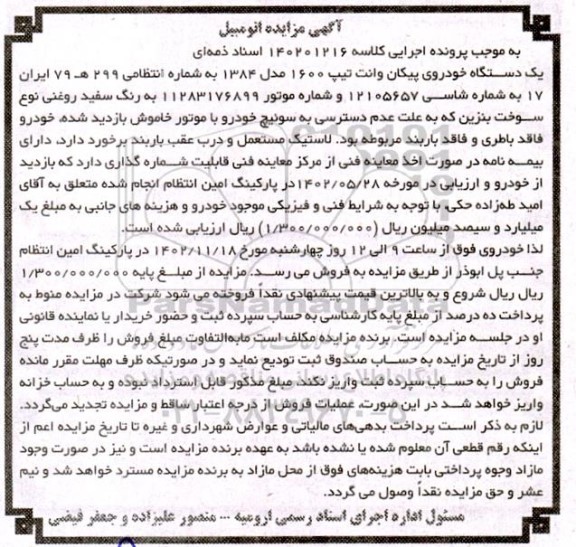 آگهی مزایده اتومبیل
به موجب پرونده اجرایی کلاسه ۱۴۰۲۰۱۲۱۶ اسناد ذمه‌ای
یک دستگاه خودروی پیکان وانت تیپ ۱۶۰۰ مدل ۱۳۸۴ به شماره انتظامی ۲۹۹ هـ ۷۹ ایران
۱۷ به شماره شاسی ۱۲۱۰۵۶۵۷ و شماره موتور ۱۱۲۸۳۱۷۶۸۹۹ به رنگ سفید روغنی نوع
سوخت بنزین که به علت عدم دسترسی به سوئیچ خودرو با موتور خاموش بازدید شده، خودرو
فاقد باطری و فاقد باربند مربوطه بود. لاستیک مستعمل و درب عقب باربند برخورد دارد، دارای
بیمه نامه در صورت اخذ معاینه فنی از مرکز معاینه فنی قابلیت شماره گذاری دارد که بازدید
از خودرو و ارزیابی در مورخه ۱۴۰۲/۰۵/۲۸ در پارکینگ امین انتظام انجام شده متعلق به آقای
امید طه‌زاده حکی، با توجه به شرایط فنی و فیزیکی موجود خودرو و هزینه های جانبی به مبلغ یک
میلیارد و سیصد میلیون ریال (۱/۳۰۰/۰۰۰/۰۰۰) ریال ارزیابی شده است.
لذا خودروی فوق از ساعت ۹ الی ۱۲ روز چهارشنبه مورخ ۱۴۰۲/۱۱/۱۸ در پارکینگ امین انتظام
جنب پل ابوذر از طریق مزایده به فروش می رسد. مزایده از مبلغ پایه ۱/۳۰۰/۰۰۰/۰۰۰
ریال ریال شروع و به بالاترین قیمت پیشنهادی نقداً فروخته می شود شرکت در مزایده منوط به
پرداخت ده درصد از مبلغ پایه کارشناسی به حساب سپرده ثبت و حضور خریدار یا نماینده قانونی
او در جلسه مزایده است. برنده مزایده مکلف است مابه‌التفاوت مبلغ فروش را ظرف مدت پنج
روز از تاریخ مزایده به حساب صندوق ثبت تودیع نماید و در صورتیکه ظرف مهلت مقرر مانده
فروش را به حساب سپرده ثبت واریز نکند، مبلغ مذکور قابل استرداد نبوده و به حساب خزانه
واریز خواهد شد در این صورت، عملیات فروش از درجه اعتبار ساقط و مزایده تجدید می‌گردد.
لازم به ذکر است پرداخت بدهی‌های مالیاتی و عوارض شهرداری و غیره تا تاریخ مزایده اعم از
اینکه رقم قطعی آن معلوم شده یا نشده باشد به عهده برنده مزایده است و نیز در صورت وجود
مازاد وجوه پرداختی بابت هزینه‌های فوق از محل مازاد به برنده مزایده مسترد خواهد شد و نیم
عشر و حق مزایده نقداً وصول می گردد.
مسئول اداره اجرای اسناد رسمی ارومیه --- منصور علیزاده و جعفر فیضی